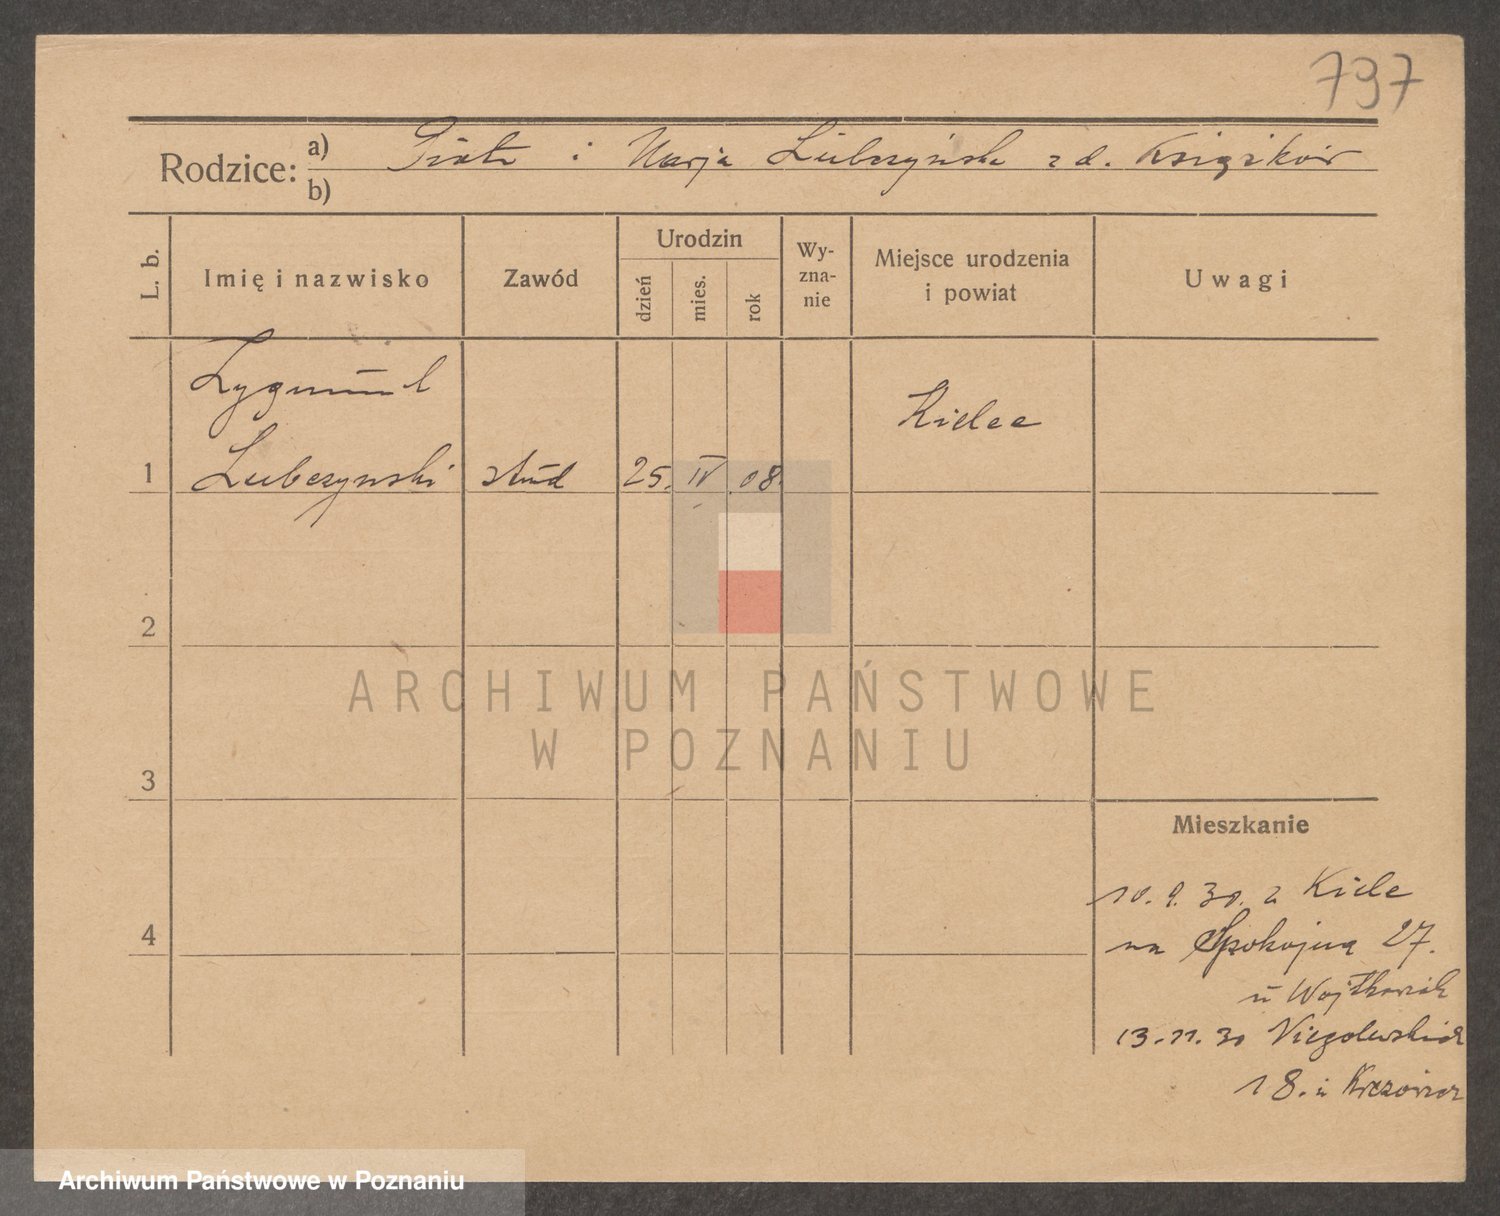 797
Rodzice: a) Piotr i Marja Lubczyńska z d. Książków
b)
L. b.
Imię i nazwisko
Zawód
Urodzin
dzień
mies.
rok
Wy-
zna-
nie
Miejsce urodzenia
i powiat
Uwagi
Zygmund
Kielce
1 Lubczynski stud 25. IV .08.
2
ARCHIWUM PAŃSTWOWE
W POZNANIU
3
Mieszkanie
10.9.30. z Kielc
4
na Spokojną 27.
u Wojtkowiak
13.11.30 Niegolewskich
18. u
Archiwum Państwowe w Poznaniu